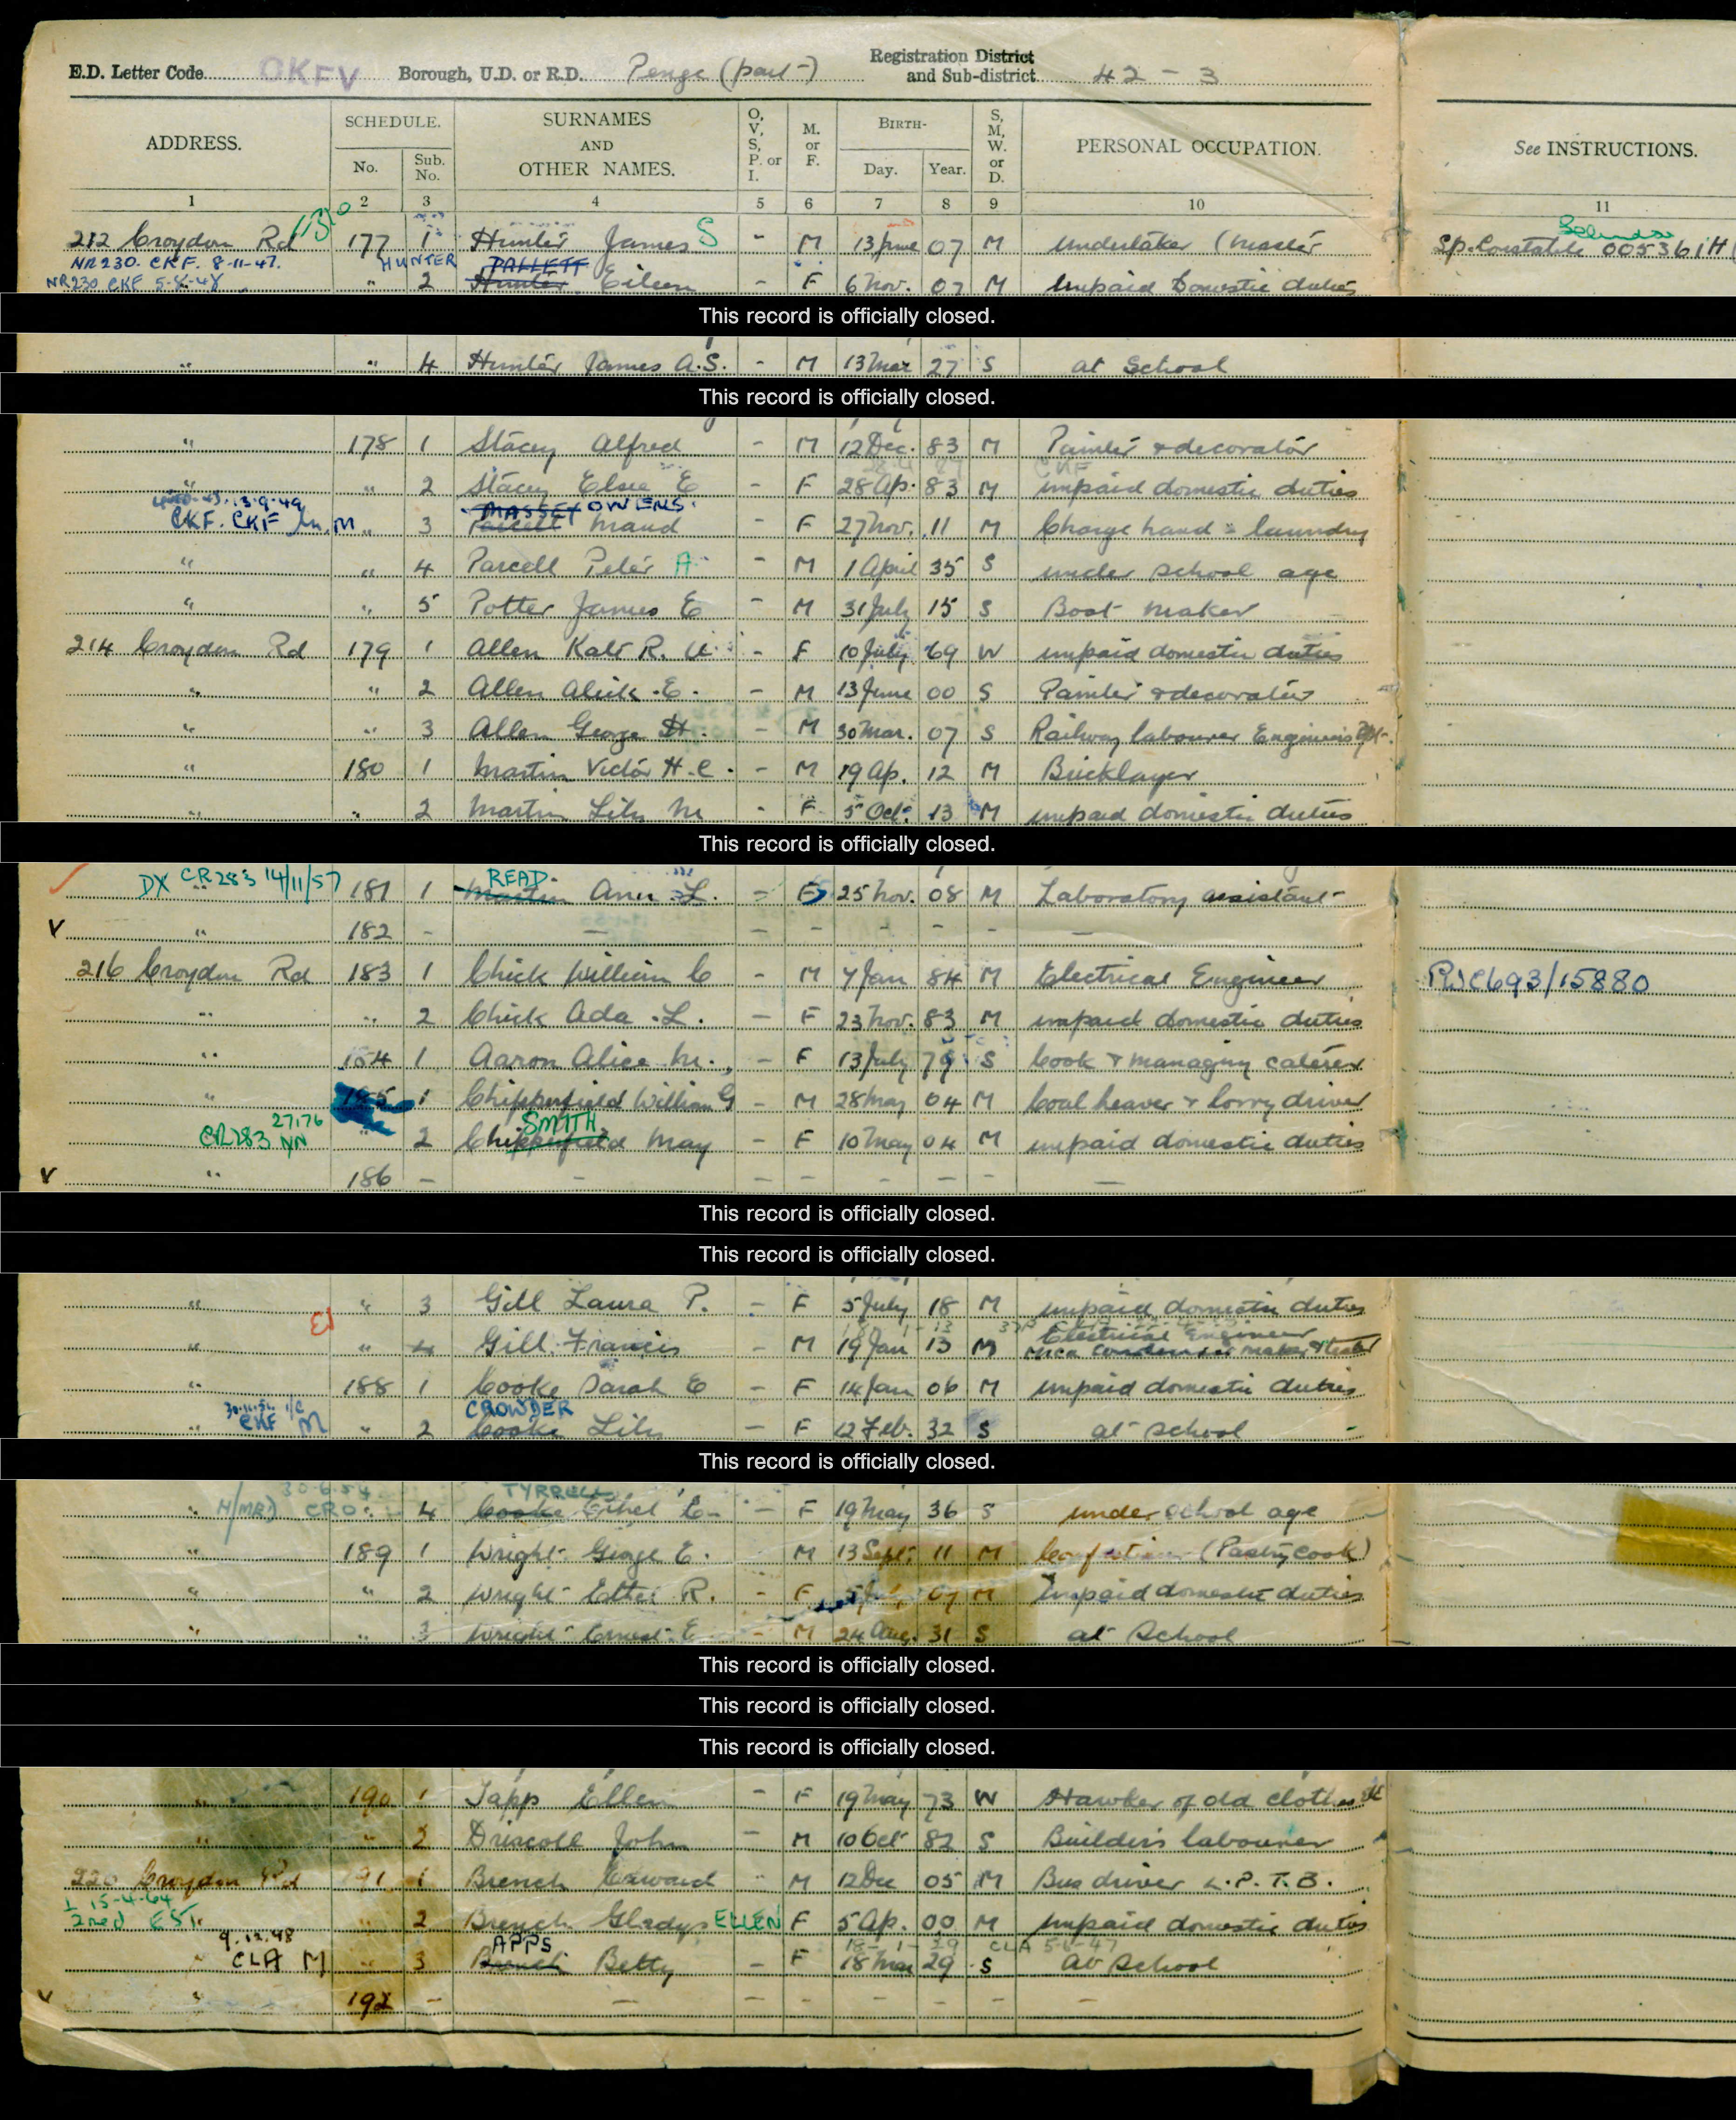 E.D. Letter Code OKFV Borough, U.D. or R.D. Penge (part-) Registration District and Sub-district 42-3
ADDRESS. SCHEDULE. No. Sub. No. SURNAMES AND OTHER NAMES. O, V, S, P. or I. M. or F. BIRTH- Day. Year. S, M, W. or D. PERSONAL OCCUPATION. See INSTRUCTIONS.
1 2 3 4 5 6 7 8 9 10 11
212 Croydon Rd 177 1 Hunter James S - M 13 June 07 M Undertaker (Master Sp. Constable 005361H
NR230. CKF. 8-11-47. HUNTER PALLETT
NR230 CKF 5-8-48 " 2 Hunter Eileen - F 6 Nov. 07 M Unpaid Domestic duties
This record is officially closed.
" " 4 Hunter James A.S. - M 13 Mar 27 S at School
This record is officially closed.
" 178 1 Stacey Alfred - M 12 Dec. 83 M Painter & decorator
CKF
" " 2 Stacey Elsie E - F 28 Ap. 83 M unpaid domestic duties
13-9-49 MASSEY OWENS.
CKF. CKF M " 3 Parcell Maud - F 27 Nov. 11 M Charge hand = laundry
" " 4 Parcell Peter A - M 1 April 35 S under school age
" " 5 Potter James E - M 31 July 15 S Boot maker
214 Croydon Rd 179 1 Allen Kate R. - F 10 July 69 W unpaid domestic duties
" " 2 Allen Alick E. - M 13 June 00 S Painter & decorator
" " 3 Allen George H. - M 30 Mar. 07 S Railway labourer Engineers Dpt.
" 180 1 Martin Victor H.C. - M 19 Ap. 12 M Bricklayer
" " 2 Martin Lily M - F 5 Oct. 13 M unpaid domestic duties
This record is officially closed.
DX CR283 14/11/57 READ.
" 181 1 Martin Ann L. - F 25 Nov. 08 M Laboratory assistant
V " 182 - - - - - - - -
216 Croydon Rd 183 1 Chick William C - M 7 Jan 84 M Electrical Engineer RWC693/15880
" " 2 Chick Ada L. - F 23 Nov. 83 M unpaid domestic duties
" 184 1 Aaron Alice M. - F 13 July 79 S Cook & managing caterer
" 185 1 Chipperfield William G - M 28 May 04 M Coal heaver & lorry driver
27.76 SMITH
CR283 NN " 2 Chipperfield May - F 10 May 04 M unpaid domestic duties
V " 186 - - - - - - - -
This record is officially closed.
This record is officially closed.
" " 3 Gill Laura P. - F 5 July 18 M unpaid domestic duties
Electrical Engineer
" " 4 Gill Francis - M 19 Jan 13 M mica condenser maker & tester
" 188 1 Cooke Sarah E - F 14 Jan 06 M unpaid domestic duties
CROWDER
" CKF M " 2 Cooke Lily - F 12 Feb. 32 S at school
This record is officially closed.
30-6-54 TYRRELL
" CRO " 4 Cooke Ethel E - F 19 May 36 S under school age
" 189 1 Wright George E. M 13 Sept. 11 M (Pastry Cook)
" " 2 Wright Esther R. - F 07 M unpaid domestic duties
" " 3 Wright Ernest E - M 24 Aug. 31 S at School
This record is officially closed.
This record is officially closed.
This record is officially closed.
" 190 1 Tapp Ellen - F 19 May 73 W Hawker of old clothes
" " 2 Driscoll John - M 10 Oct 82 S Builders labourer
220 Croydon Rd 191 1 Brench Edward - M 12 Dec 05 M Bus driver L.P.T.B.
15-4-64
" 2 Brench Gladys ELLEN F 5 Ap. 00 M unpaid domestic duties
9.12.48 APPS 18-1-29 CLA 5-6-47
" CLA M " 3 Brench Betty - F 18 Mar 29 S At School
V " 192 - - - - - - - -